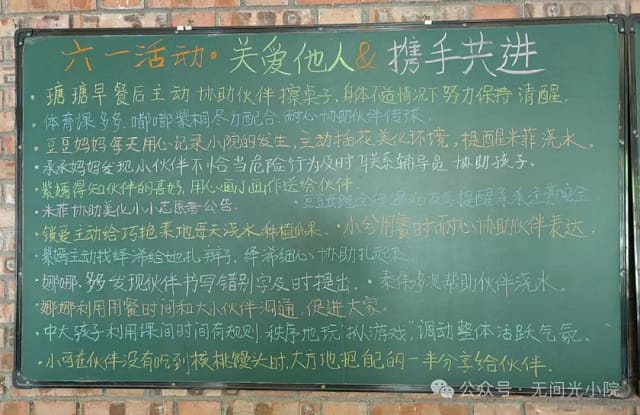 六一活动·关爱他人&携手共进
·瑭瑭早餐后主动协助伙伴擦桌子,身体不适情况下努力保持清醒.
·体育课多多,嘟嘟紫桐尽力配合,耐心协助伙伴传球.
·豆豆妈妈每天用心记录小院的发生,主动插花美化环境,提醒米菲浇水.
·承承妈妈发现小伙伴不恰当危险行为及时联系辅导员协助孩子.
·紫嫣得知伙伴的喜好,用心画小画作送给伙伴.
·米菲协助美化小小志愿者公告.
提醒 注意安全.
·锁爱主动给巧艳菜地每天浇水种植瓜果.
·小兮用餐时耐心协助伙伴表达.
·紫嫣主动找绎浠给她扎辫子,绎浠细心协助扎起来.
·娜娜.多多发现伙伴书写错别字及时提出.
·秦伟多次帮助伙伴浇水.
·娜娜利用用餐时间和大小伙伴沟通,促进大家.
·中大孩子利用课间时间有规则.秩序地玩"扒游戏",调动整体活跃气氛.
·小可在伙伴没有吃到核桃馒头时,大方地把自己的一半分享给伙伴.
公众号·无间光小院